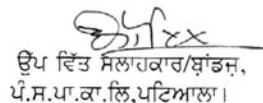 ਉੱਪ ਵਿੱਤ ਸਲਾਹਕਾਰ/ਬ੍ਰਾਂਡਜ਼,
ਪੰ.ਸ.ਪਾ.ਕਾ.ਲਿ.ਪਟਿਆਲਾ।